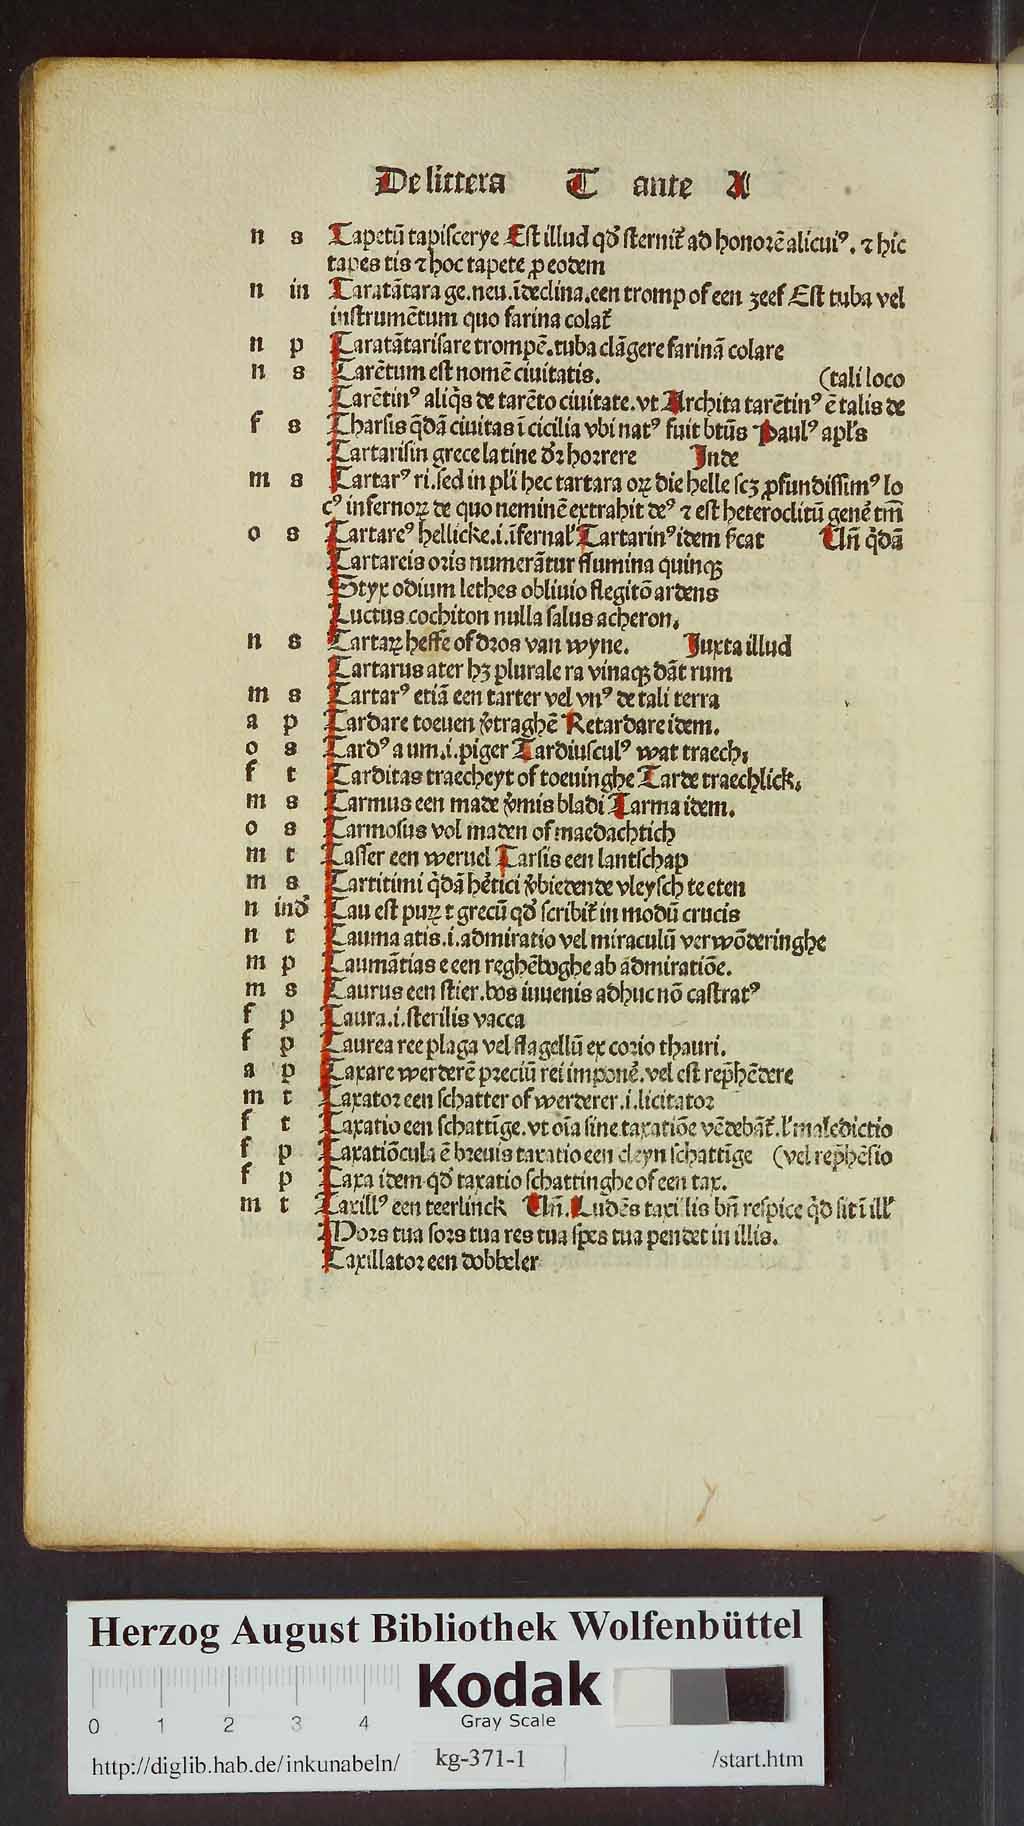 De littera T ante A
n s Tapetũ tapiscerye Est illud qđ sternit᷑ ad honorẽ alicuiꝰ. ⁊ hic
tapes tis ⁊ hoc tapete ꝓ eodem
n in Taratãtara ge. neu. ĩdeclina. een tromp of een zeef Est tuba vel
instrumẽtum quo farina colat᷑
n p Taratãtarisare trompẽ. tuba clãgere farinã colare
n s Tarẽtum est nomẽ ciuitatis. (tali loco
Tarẽtinꝰ aliq̃s de tarẽto ciuitate. vt Archita tarẽtinꝰ ẽ talis de
f s Tharsis q̃dã ciuitas ĩ cicilia vbi natꝰ fuit btũs Paulꝰ apl's
Tartarisin grece latine dꝛ hoꝛrere Inde
m s Tartarꝰ ri. sed in pli hec tartara oꝝ die helle scꝫ ꝓfundissimꝰ lo
cꝰ infernoꝝ de quo neminẽ extrahit deꝰ ⁊ est heteroclitũ genẽ tm̃
o s Tartareꝰ hellicke. i. ĩfernal' Tartarinꝰ idem s̃cat Uñ q̃dã
Tartareis oris numerãtur flumina quinqꝫ
Styx odium lethes obliuio flegitõ ardens
Luctus cochiton nulla salus acheron.
n s Tartaꝝ heffe of dꝛos van wyne. Juxta illud
Tartarus ater hꝫ plurale ra vinaqꝫ dãt rum
m s Tartarꝰ etiã een tarter vel vnꝰ de tali terra
a p Tardare toeuen v̓traghẽ Retardare idem.
o s Tardꝰ a um. i. piger Tardiusculꝰ wat traech.
f t Tarditas traecheyt of toeuinghe Tarde traechlick.
m s Tarmus een made v̓mis bladi Tarma idem.
o s Tarmosus vol maden of maedachtich
m t Tasser een weruel Tarsis een lantschap
m s Tartitimi q̃dã he̓tici v̓biedende vleysch te eten
n indʼ Tau est puꝝ t grecũ qđ scribit᷑ in modũ crucis
n t Tauma atis. i. admiratio vel miraculũ verwõderinghe
m p Taumãtias e een reghẽboghe ab admiratiõe.
m s Taurus een stier. bos iuuenis adhuc nõ castratꝰ
f p Taura. i. sterilis vacca
f p Taurea ree plaga vel flagellũ ex coꝛio thauri.
a p Taxare werderẽ pꝛeciũ rei imponẽ. vel est rep̃hẽdere
m t Taxatoꝛ een schatter of werderer. i. licitatoꝛ
f t Taxatio een schattĩge. vt oĩa sine taxatiõe vẽdebãt᷑. l' maledictio
f p Taxatiõcula ẽ bꝛeuis taxatio een cleyn schattĩge (vel rep̃hẽsio
f p Taxa idem qđ taxatio schattinghe of een tax.
m t Taxillꝰ een teerlinck Uñ. Ludẽs taxillis bñ respice q̃d sit ĩ ill'
Moꝛs tua soꝛs tua res tua spes tua pendet in illis.
Taxillatoꝛ een dobbeler
Herzog August Bibliothek Wolfenbüttel
Kodak
Gray Scale
0 1 2 3 4
http://diglib.hab.de/inkunabeln/ kg-371-1 /start.htm